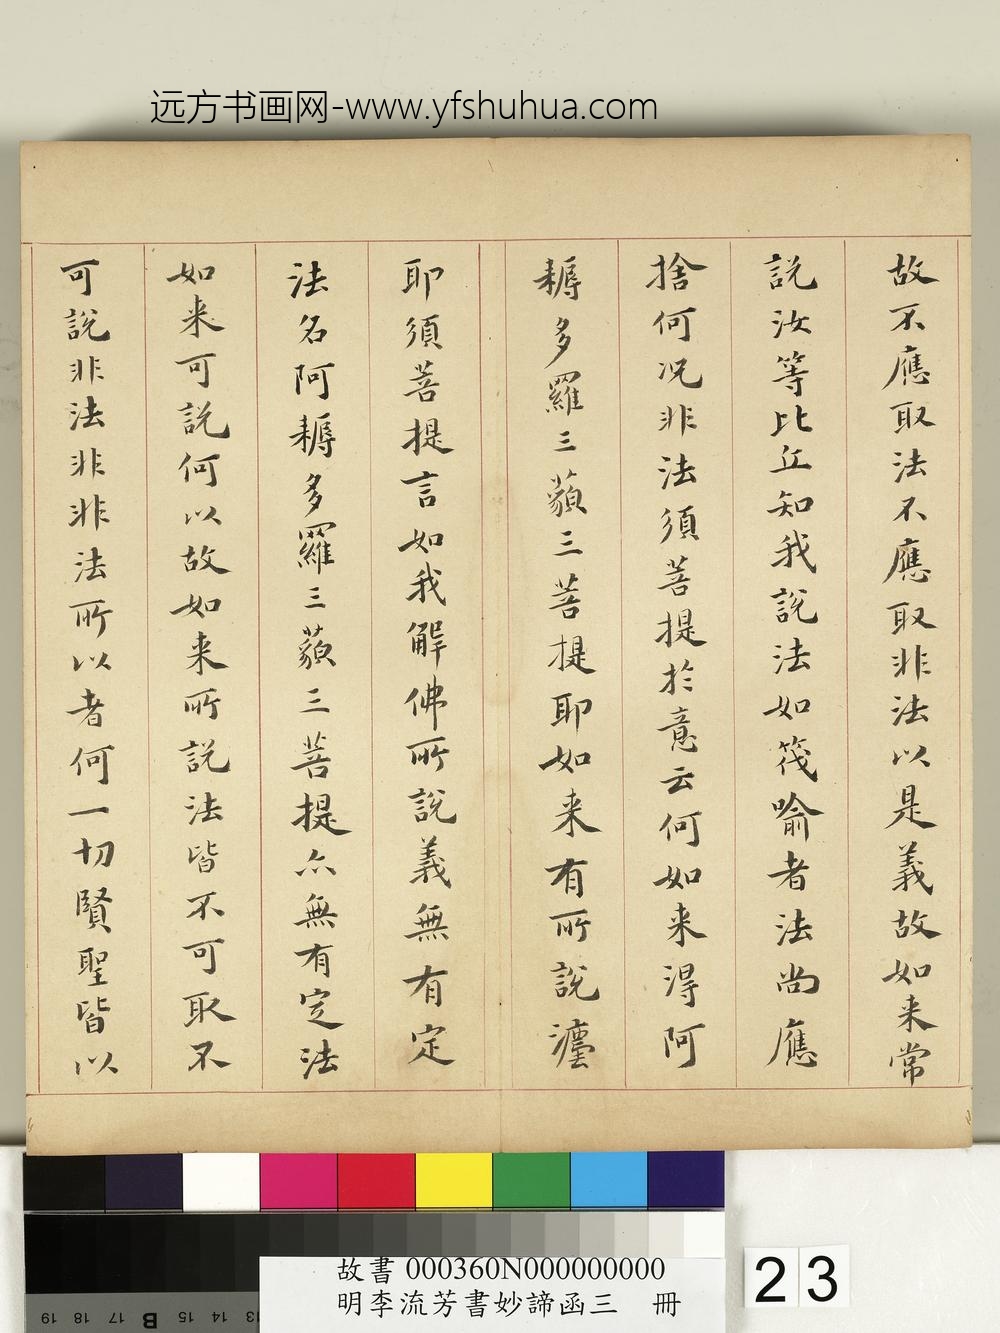 远方书画网-www.yfshuhua.com
故不應取法不應取非法以是義故如来常
說汝等比丘知我說法如筏喻者法尚應
捨何况非法須菩提於意云何如来得阿
耨多羅三藐三菩提耶如来有所說
耶須菩提言如我解佛所說義無有定
法名阿耨多羅三藐三菩提亦無有定法
如来可說何以故如来所說法皆不可取不
可說非法非非法所以者何一切賢聖皆以
故書 000360N000000000
明李流芳書妙諦函三 冊
23
19 18 17 B 15 14 13